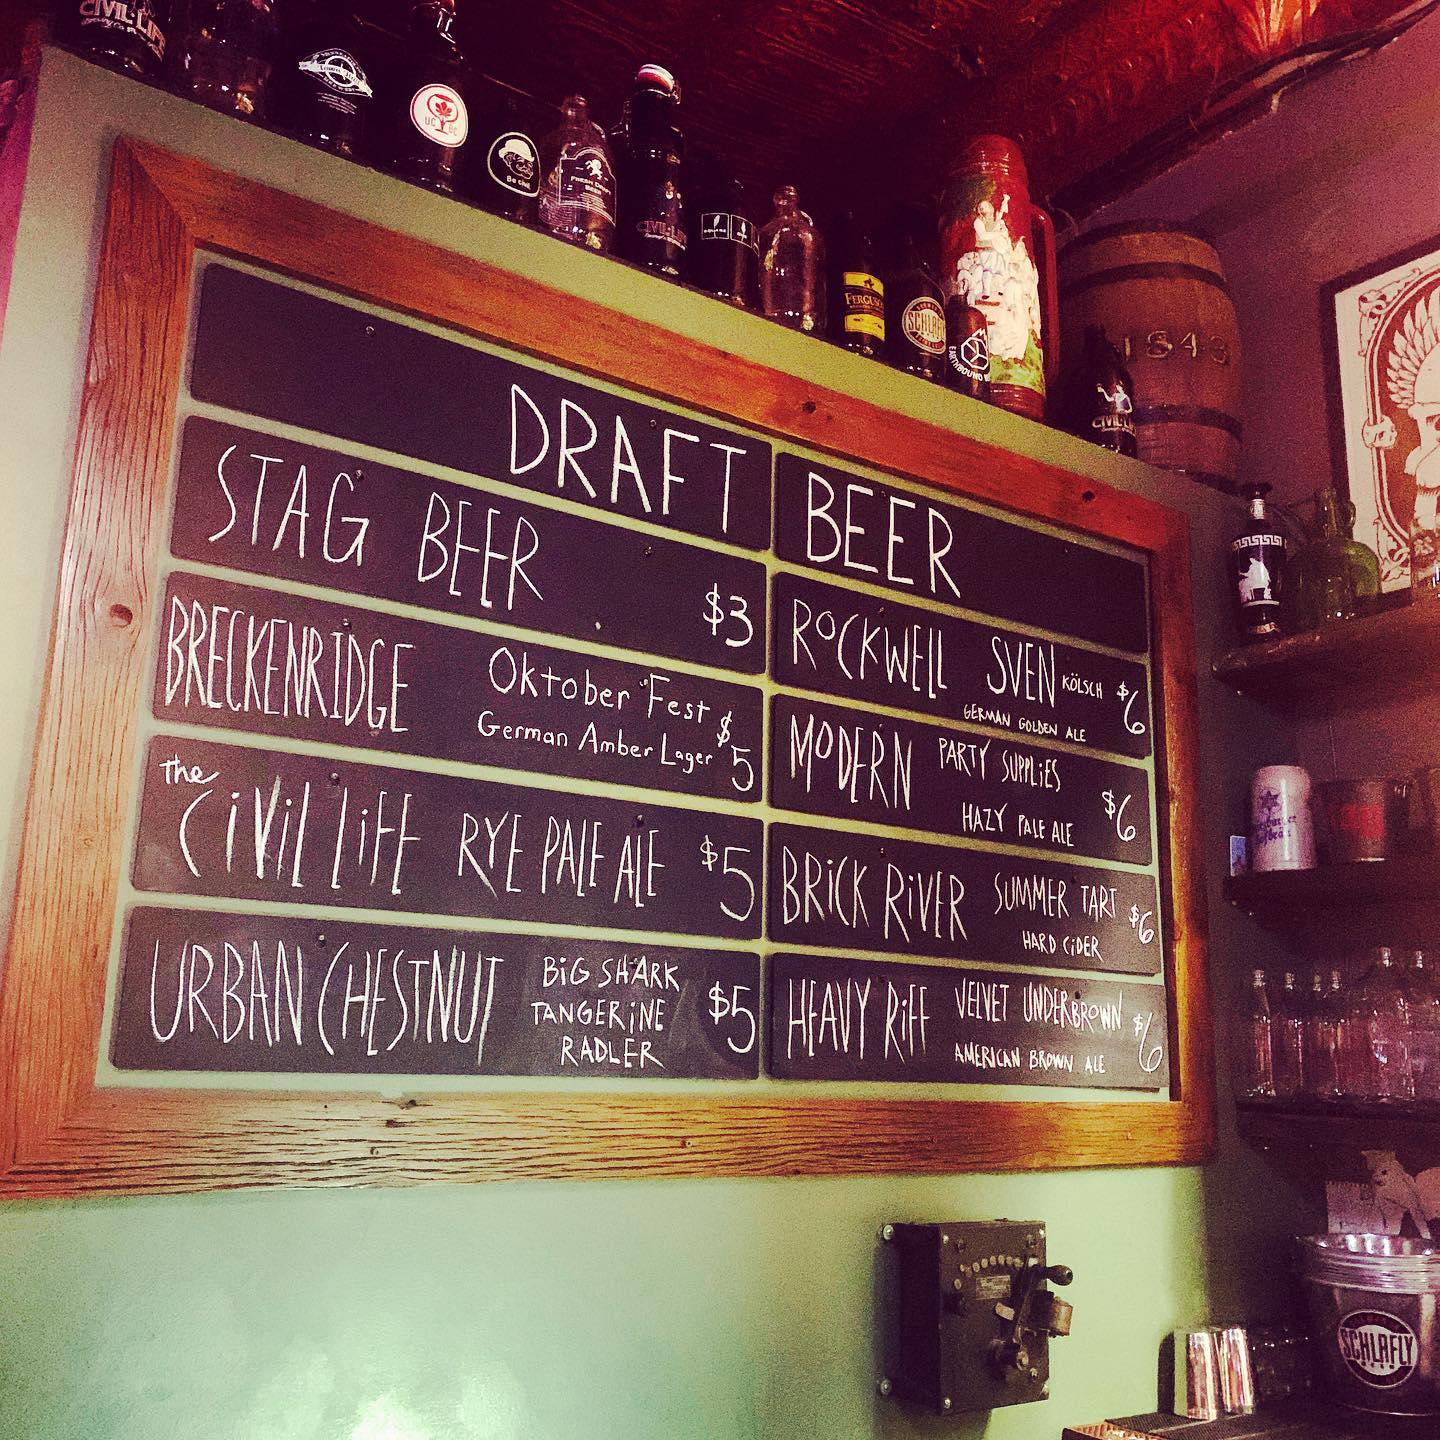 CIVIL LIFE
UC BC
Be chill
FRESH CRAFT
BEER
CIVIL LIFE
FERGUSON
SCHLAFLY
EARTHBOUND
1843
CIVIL LIFE
DRAFT BEER
STAG BEER $3
BRECKENRIDGE Oktober Fest $5
German Amber Lager
the
CIVIL LIFE RYE PALE ALE $5
URBAN CHESTNUT BIG SHARK $5
TANGERINE
RADLER
ROCKWELL SVEN KÖLSCH $6
GERMAN GOLDEN ALE
MODERN PARTY SUPPLIES $6
HAZY PALE ALE
BRICK RIVER SUMMER TART $6
HARD CIDER
HEAVY RIFF VELVET UNDERBROWN $6
AMERICAN BROWN ALE
SCHLAFLY